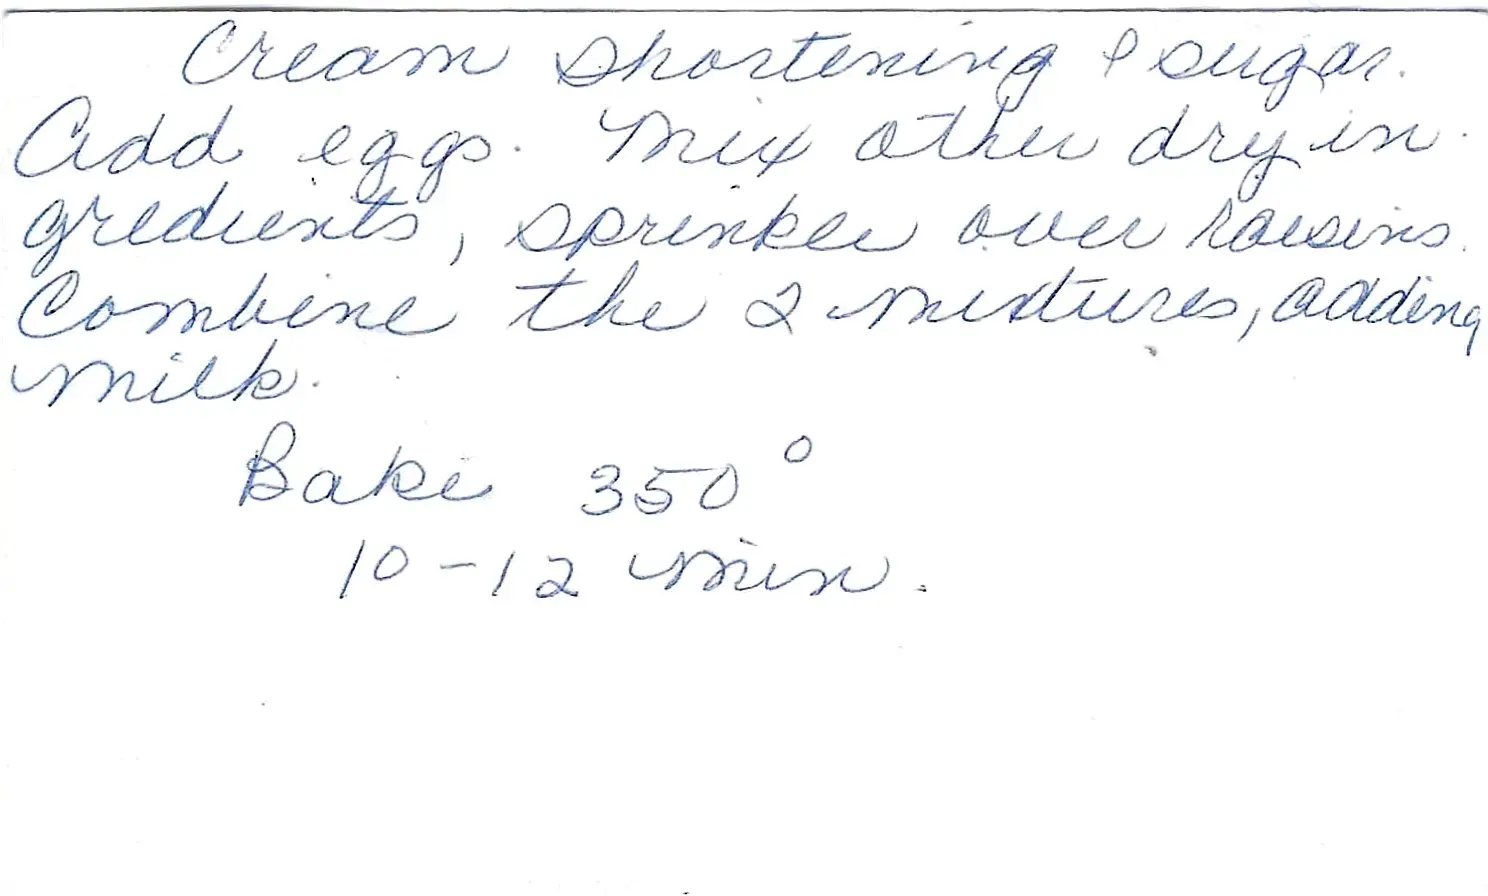 Cream shortening & sugar.
Add eggs. Mix other dry in-
gredients, sprinkle over raisins.
Combine the 2 mixtures, adding
milk.
Bake 350°
10-12 min.